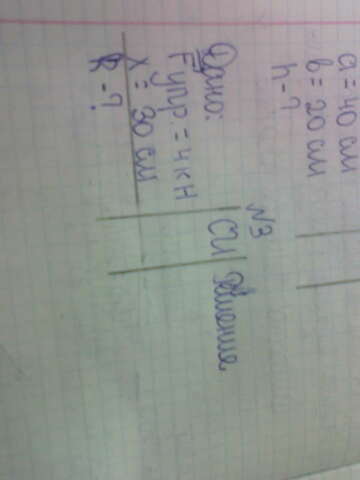 a = 40 см
в = 20 см
h - ?
№3
Дано:
Fупр = 4 кН
x = 30 см
k - ?
СИ
Решение